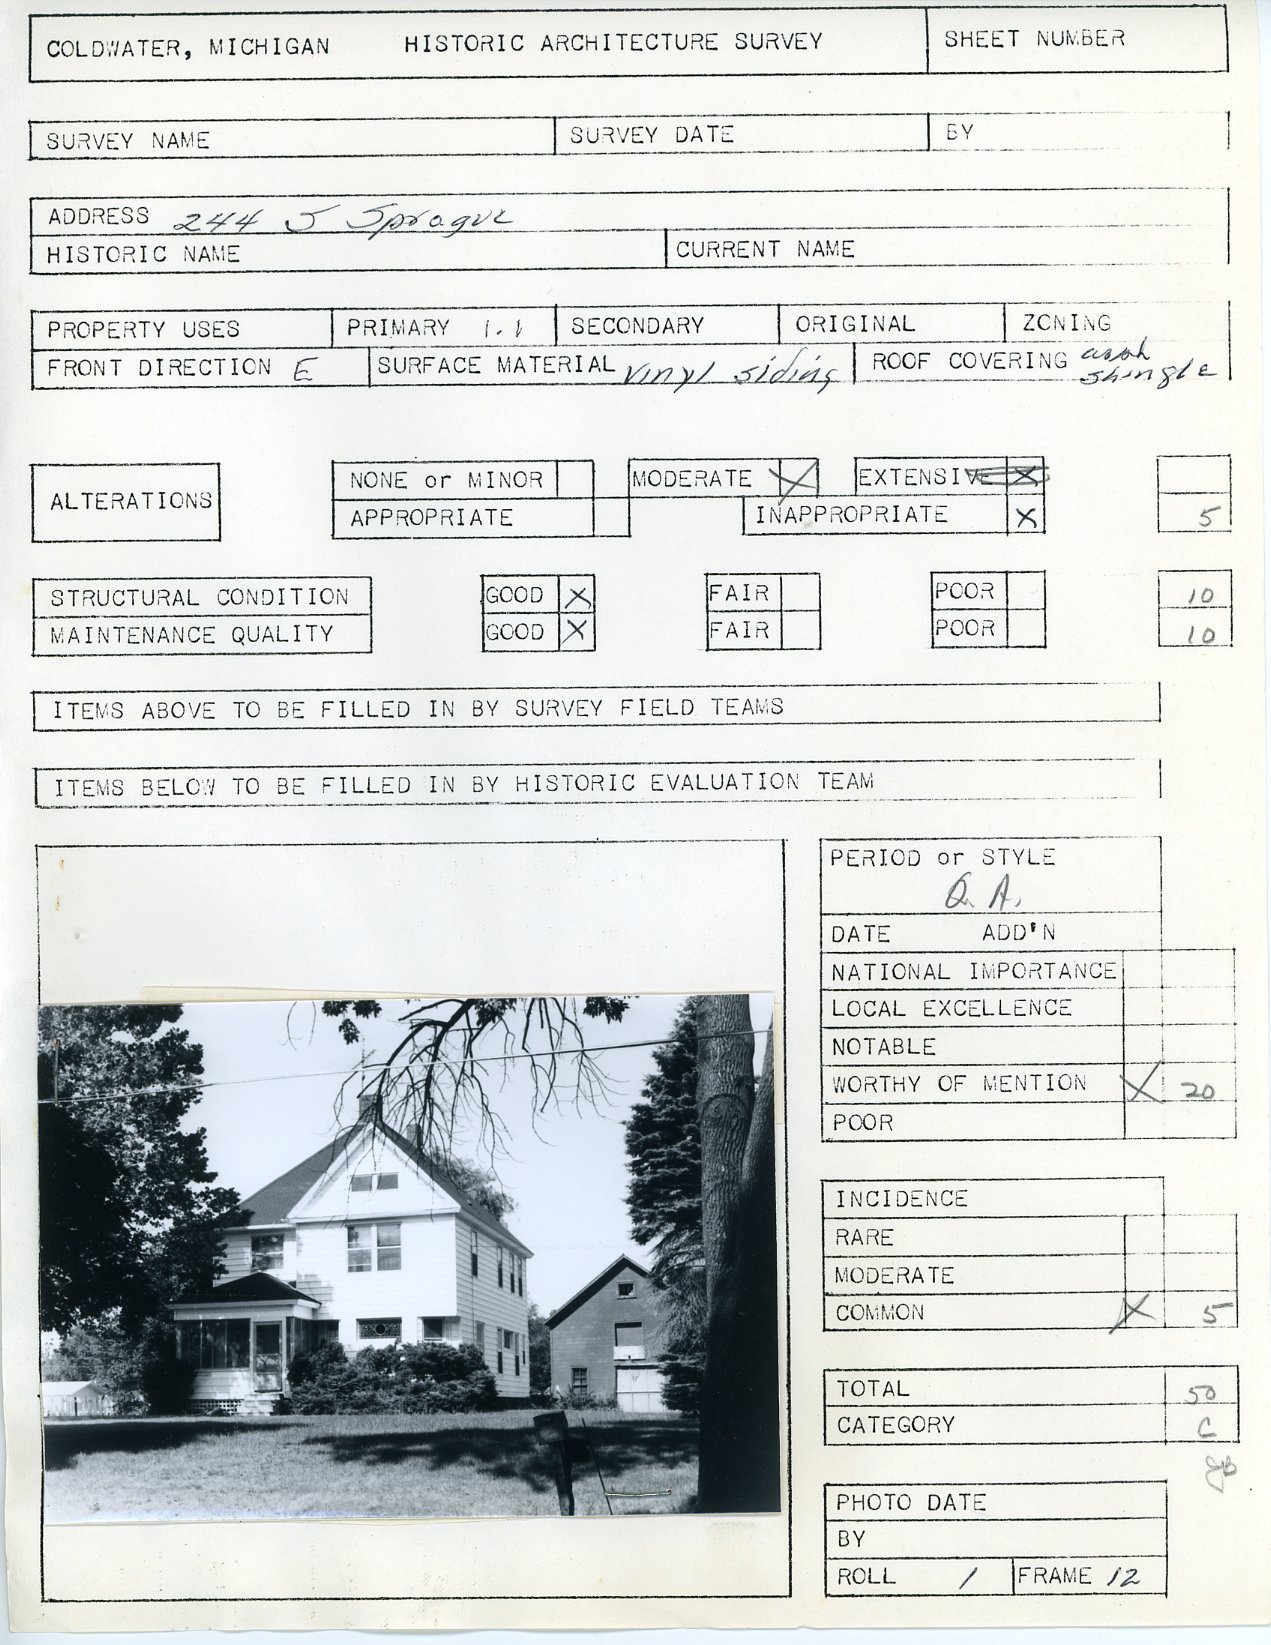 COLDWATER, MICHIGAN HISTORIC ARCHITECTURE SURVEY SHEET NUMBER
SURVEY NAME SURVEY DATE BY
ADDRESS 244 S Sprague
HISTORIC NAME CURRENT NAME
PROPERTY USES PRIMARY 1.1 SECONDARY ORIGINAL ZONING
FRONT DIRECTION E SURFACE MATERIAL vinyl siding ROOF COVERING asph
shingle
ALTERATIONS NONE or MINOR MODERATE X EXTENSIVE X
APPROPRIATE INAPPROPRIATE X 5
STRUCTURAL CONDITION GOOD X FAIR POOR 10
MAINTENANCE QUALITY GOOD X FAIR POOR 10
ITEMS ABOVE TO BE FILLED IN BY SURVEY FIELD TEAMS
ITEMS BELOW TO BE FILLED IN BY HISTORIC EVALUATION TEAM
PERIOD or STYLE
Q. A.
DATE ADD'N
NATIONAL IMPORTANCE
LOCAL EXCELLENCE
NOTABLE
WORTHY OF MENTION X 20
POOR
INCIDENCE
RARE
MODERATE
COMMON X 5
TOTAL 50
CATEGORY C
PHOTO DATE
BY
ROLL 1 FRAME 12